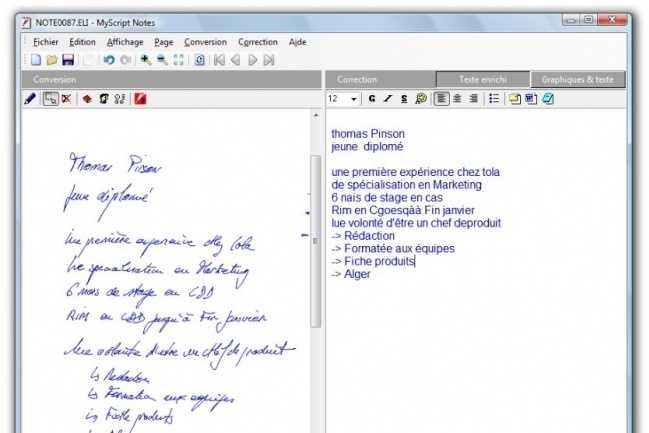 NOTE0087.ELI - MyScript Notes
Fichier Edition Affichage Page Conversion Correction Aide
Conversion
Correction Texte enrichi Graphiques & texte
12 G I S
Thomas Pinson
jeune diplomé
Une première expérience chez
de spécialisation en Marketing
6 mois de stage en CDD
en CDD jusqu'à Fin janvier
Une volonté d'être un chef de produit
↳ Rédaction
↳ Formation aux équipes
↳ Fiche produits
thomas Pinson
jeune diplomé
une première expérience chez tola
de spécialisation en Marketing
6 nais de stage en cas
Rim en Cgoesqàà Fin janvier
lue volonté d'être un chef deproduit
-> Rédaction
-> Formatée aux équipes
-> Fiche produits
-> Alger